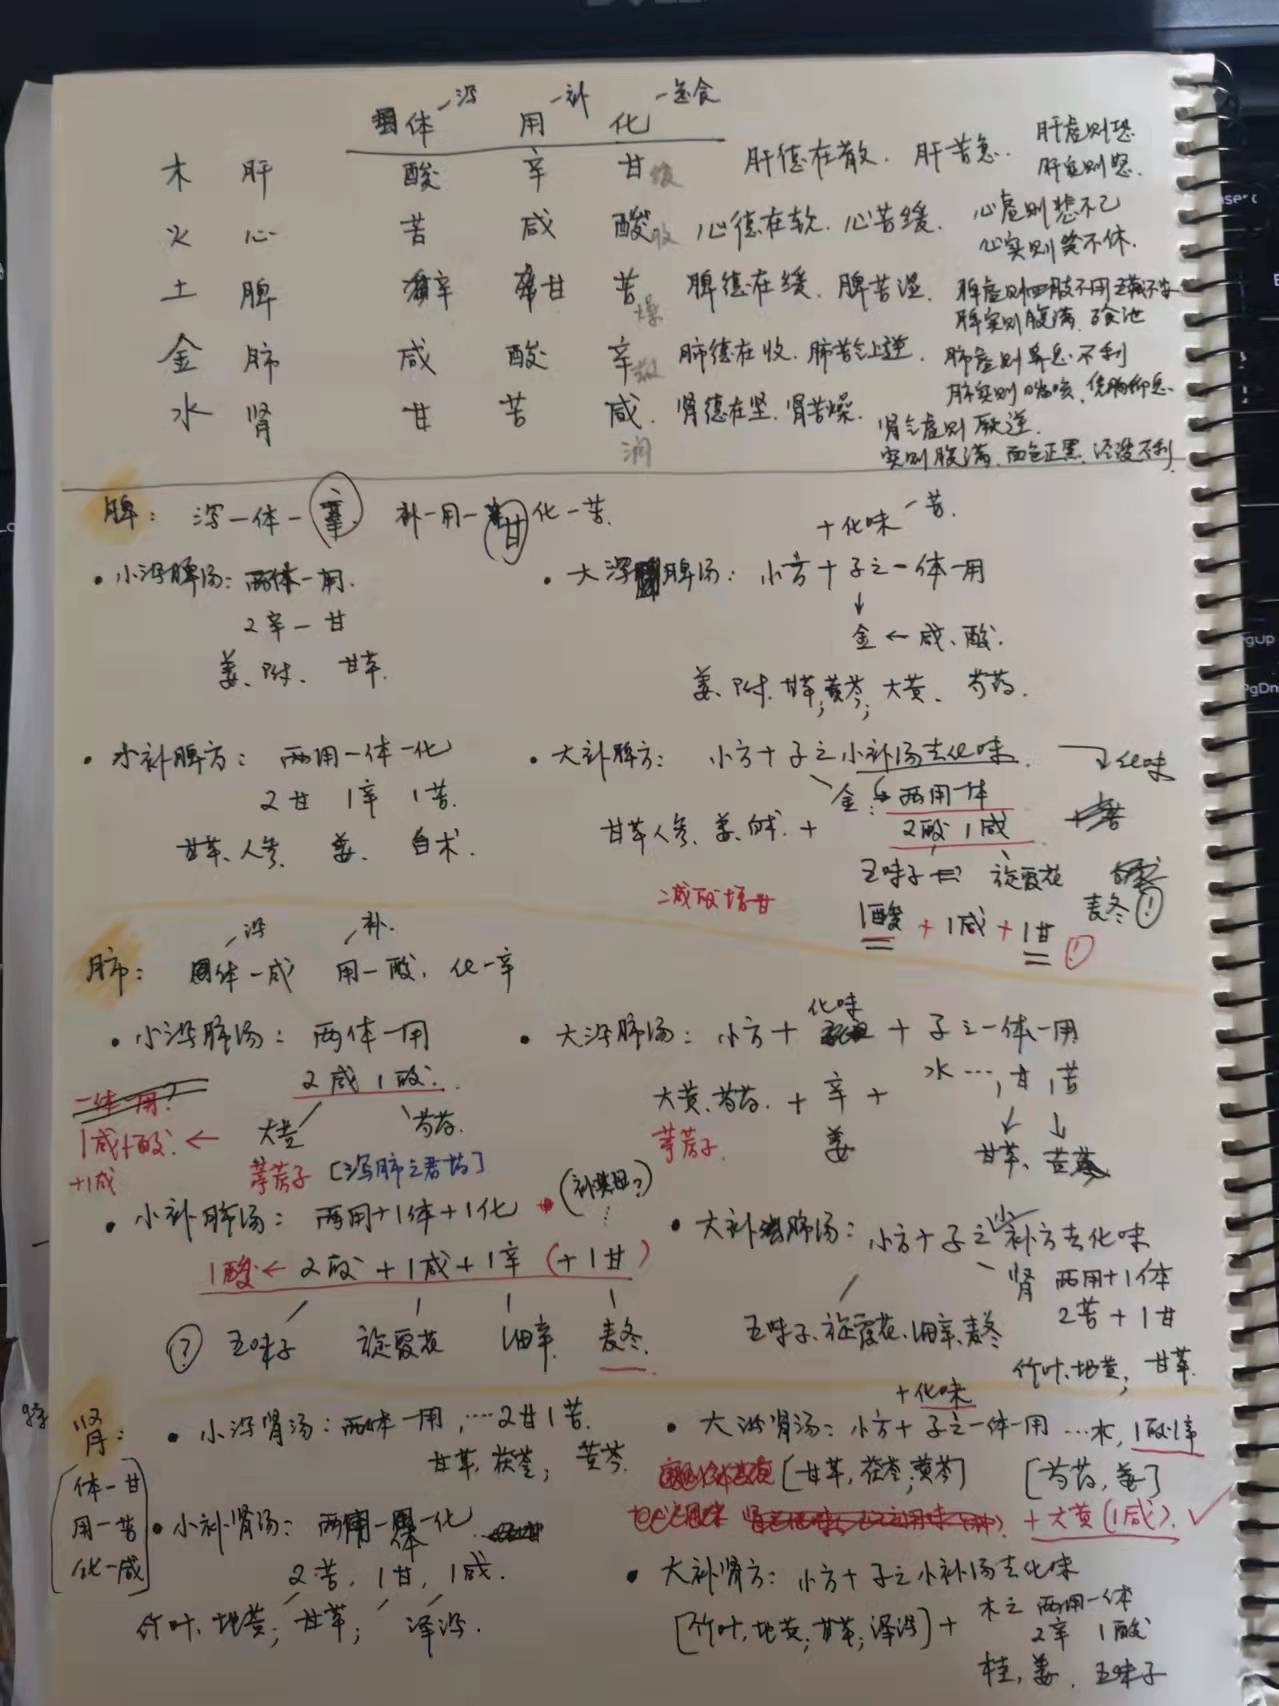 体-泻 用-补 化-
木 肝 酸 辛 甘缓 肝德在散.肝苦急. 肝虚则恐
肝实则怒.
火 心 苦 咸 酸收 心德在软.心苦缓. 心虚则悲不已
心实则笑不休.
土 脾 辛 甘 苦燥 脾德在缓.脾苦湿. 脾虚则四肢不用五藏不安
脾实则腹满、飧泄
金 肺 咸 酸 辛散 肺德在收.肺苦气上逆. 肺虚则鼻息不利
肺实则喘咳、凭胸仰息
水 肾 甘 苦 咸润 肾德在坚.肾苦燥. 肾气虚则厥逆.
实则腹满、面色正黑、泾溲不利
脾: 泻-体-辛 补-用-甘 化-苦.
+化味-苦.
• 小泻脾汤: 两体一用. • 大泻脾汤: 小方+子之一体一用
2辛一甘 ↓
金←咸、酸.
姜、附、甘草. 姜、附、甘草;黄芩;大黄、芍药.
• 小补脾方: 两用一体一化 • 大补脾方: 小方+子之小补汤去化味. 化味
2甘 1辛 1苦. 金: 两用一体
甘草、人参、姜、白术. 甘草人参、姜、白术.+ 2酸1咸
五味子 旋覆花 麦冬!
减酸增甘 1酸+1咸+1甘 !
肺: 体-咸 用-酸, 化-辛
泻 补.
• 小泻肺汤: 两体一用 • 大泻肺汤: 小方+化味+子之一体一用
一体一用?
2咸1酸. 水…,1甘1苦
1咸1酸.← 大黄 芍药. 大黄、芍药.+辛+
+1咸 葶苈子 [泻肺之君药] 葶苈子. 姜 甘草、
• 小补肺汤: 两用+1体+1化 (补其母?) • 大补肺汤: 小方+子之小补方去化味
1酸←2酸+1咸+1辛(+1甘) 肾 两用+1体
2苦+1甘
? 五味子 旋覆花 细辛 麦冬. 五味子、旋覆花、细辛、麦冬
竹叶、地黄;甘草.
肾: • 小泻肾汤:两体一用,…2甘1苦. • 大泻肾汤: 小方+子之一体一用…木,1酸1辛
+化味
甘草,茯苓;黄芩. [甘草,茯苓;黄芩] [芍药,姜]
体-甘
用-苦
化-咸
+大黄(1咸). ✓
• 小补肾汤: 两用一体一化
2苦,1甘,1咸.
竹叶、地黄;甘草; 泽泻.
• 大补肾方: 小方+子之小补汤去化味
[竹叶,地黄;甘草;泽泻]+ 木之 两用一体
2辛 1酸
桂,姜. 五味子